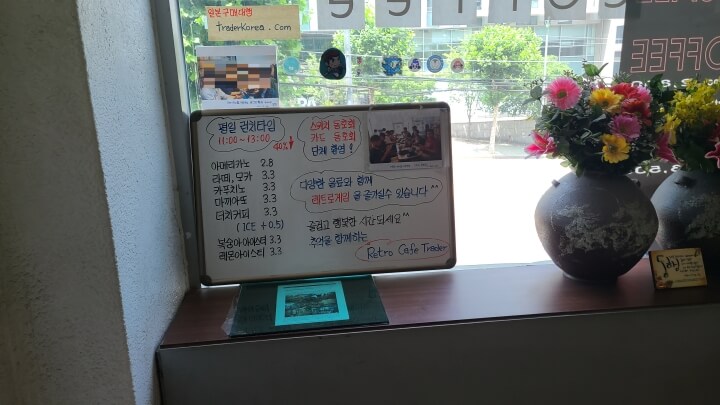 일본구매대행
TraderKorea.Com
평일 런치타임
11:00~13:00
40%↓
아메리카노 2.8
라떼, 모카 3.3
카푸치노 3.3
마끼아또 3.3
더치커피 3.3
(ICE + 0.5)
복숭아아이스티 3.3
레몬아이스티 3.3
스케치 동호회
카드 동호회
단체 환영!
다양한 음료와 함께
레트로게임을 즐기실수 있습니다^^
즐겁고 행복한 시간되세요^^
추억을 함께하는
Retro Cafe Trader
OFFEE